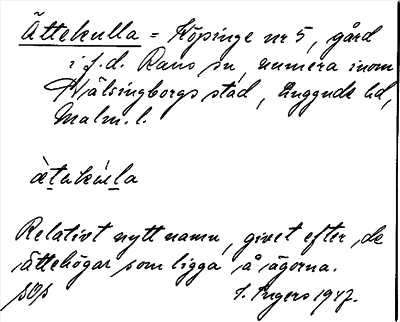 Ättekulla = Köpinge nr 5, gård
i f.d. Raus sn, numera inom
Hälsingborgs stad, Luggude hd,
Malm. l.
ätakúlla
Relativt nytt namn, givet efter de
ättehögar som ligga å ägorna.
I. Ingers 1947.